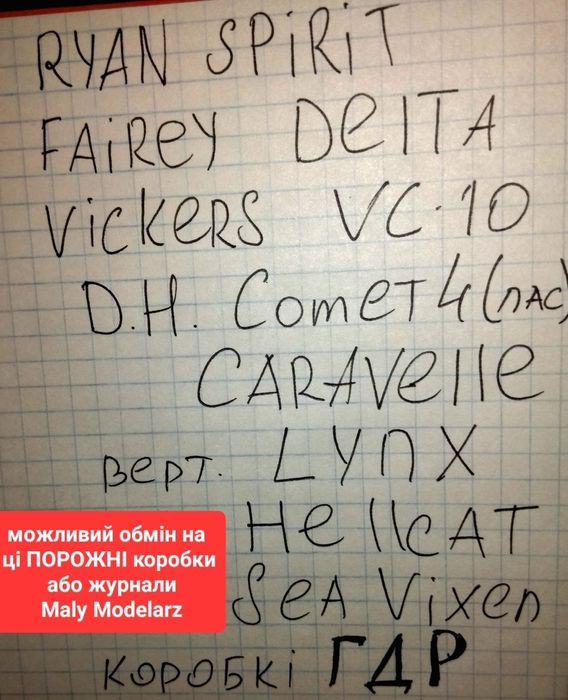 RYAN SPiRiT
FAiReY DelTA
VicKeRS VC-10
D.H. ComeT 4 (пАС)
CARAVelle
верт. LYnX
HellcAT
можливий обмін на
ці ПОРОЖНІ коробки
або журнали
Maly Modelarz
SeA Vixen
коробкі ГДР